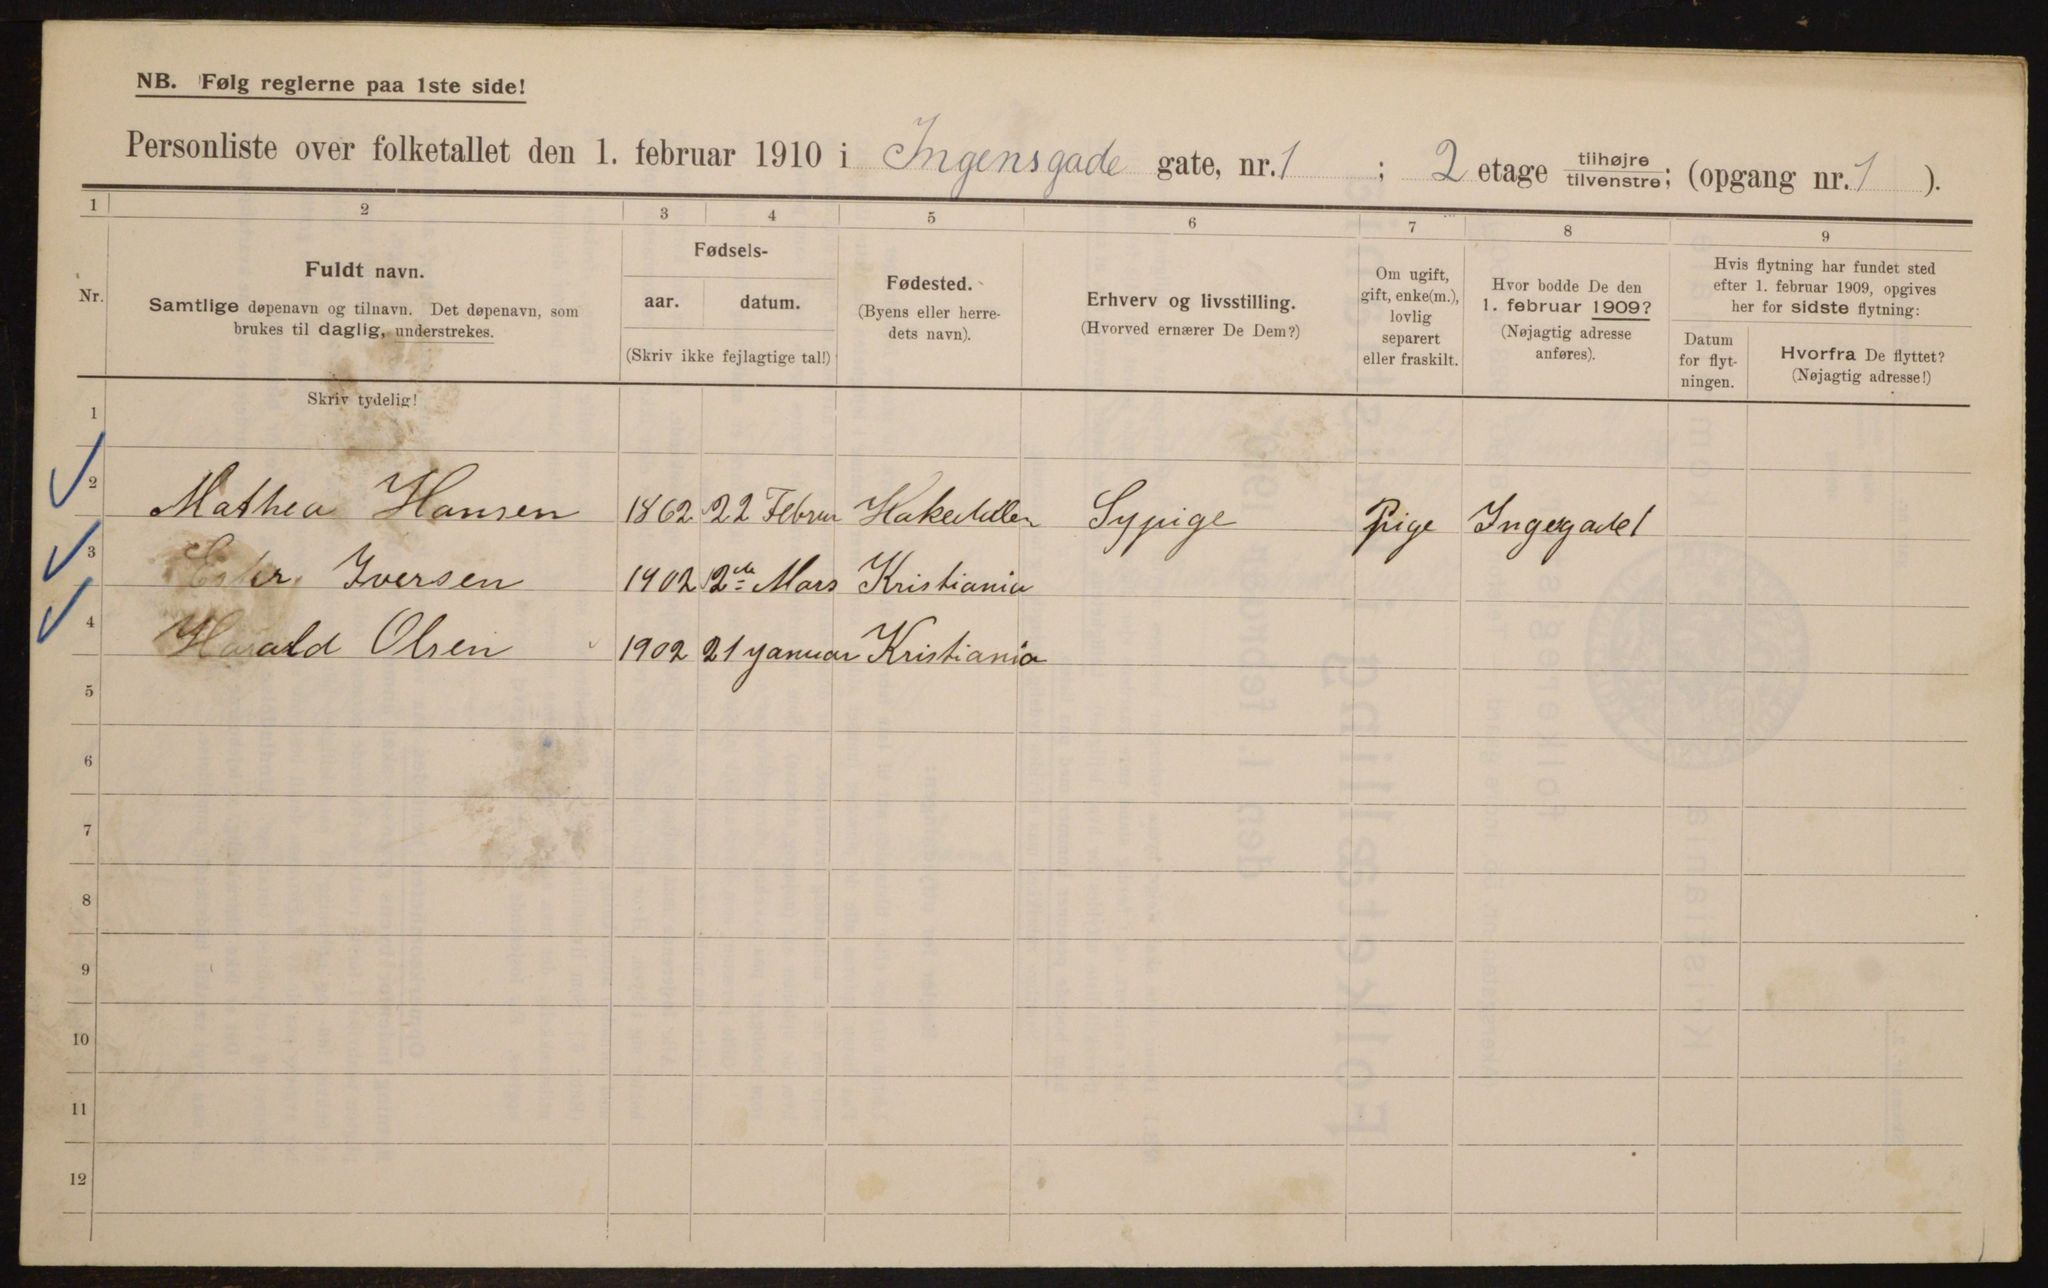 NB. Følg reglerne paa 1ste side!
Personliste over folketallet den 1. februar 1910 i Ingensgade gate, nr. 1 ; 2 etage tilhøjre tilvenstre; (opgang nr. 1 ).
1 2 3 4 5 6 7 8 9
Nr.
Fuldt navn.
Samtlige døpenavn og tilnavn. Det døpenavn, som
brukes til daglig, understrekes.
Fødsels-
aar. datum.
(Skriv ikke fejlagtige tal!)
Fødested.
(Byens eller herre-
dets navn).
Erhverv og livsstilling.
(Hvorved ernærer De Dem?)
Om ugift,
gift, enke(m.),
lovlig
separert
eller fraskilt.
Hvor bodde De den
1. februar 1909?
(Nøjagtig adresse
anføres).
Hvis flytning har fundet sted
efter 1. februar 1909, opgives
her for sidste flytning:
Datum
for flyt-
ningen.
Hvorfra De flyttet?
(Nøjagtig adresse!)
Skriv tydelig!
1
2 Mathea Hansen 1862 22 Februr Sypige Pige Ingegade 1
3 Iversen 1902 2 Mars Kristiania
4 Harald Olsen 1902 21 januar Kristiania
5
6
7
8
9
10
11
12